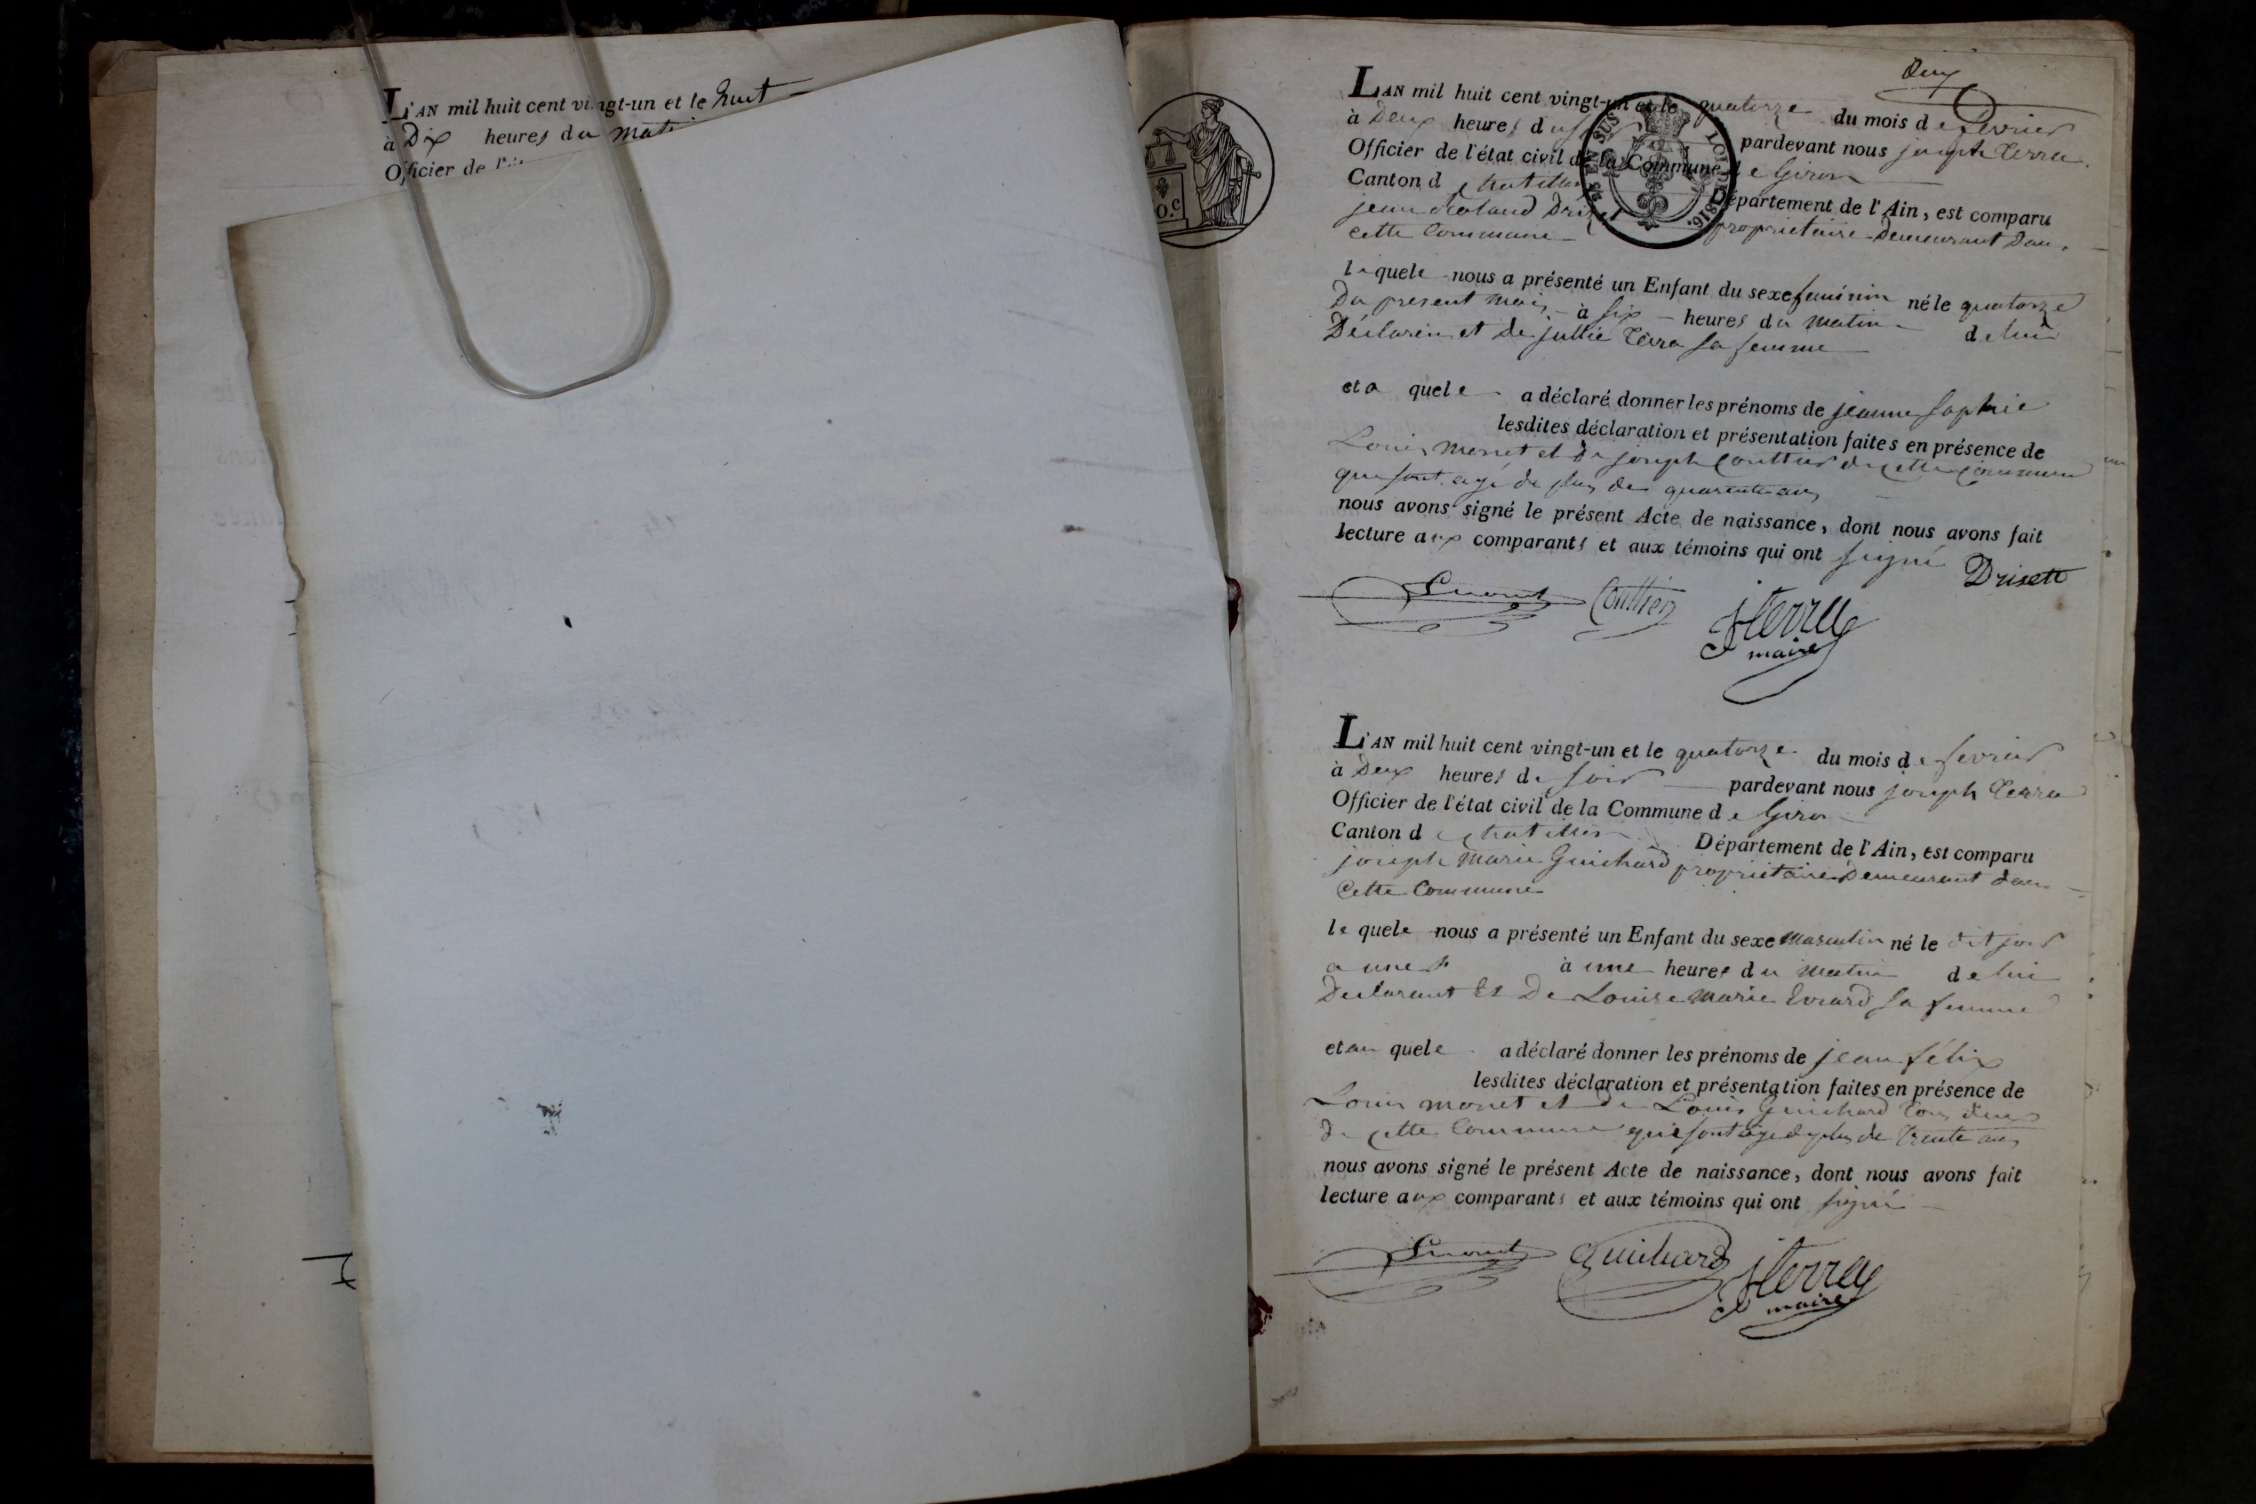 L'AN mil huit cent vingt-un et le huit
à Dix heures du mati
Officier de l'
O.c
Deux
L'AN mil huit cent vingt-un et le quatorze du mois de fevrier
à Deux heures du pardevant nous joseph Terra
Officier de l'état civil de la Commune de Giron
Canton d chatillon Département de l'Ain, est comparu
jean Roland propriétaire Demeurant Dans
cette Commune
EN SUS LOI DE 1816.
le quele nous a présenté un Enfant du sexe feminin né le quatorze
Du present mois à six heures du matin de lui
Déclarent et de jullie Terra sa femme
et a quele a déclaré donner les prénoms de jeanne sophie
lesdites déclaration et présentation faites en présence de
Louis monet et de joseph Couttier de cette Commune
qui sont agé de plus de quarente ans
nous avons signé le présent Acte de naissance, dont nous avons fait
lecture aux comparants et aux témoins qui ont signé
Lmonet Couttier jterra
maire
L'AN mil huit cent vingt-un et le quatorze du mois de fevrier
à Deux heures de soir pardevant nous joseph Terra
Officier de l'état civil de la Commune de Giron
Canton d chatillon Département de l'Ain, est comparu
joseph marie Guichard propriétaire Demeurant dans
cette Commune
le quele nous a présenté un Enfant du sexe masculin né le dit jour
a une h à une heures du matin de lui
Declarant Et De Louise marie Evrard sa femme
et au quele a déclaré donner les prénoms de jean félix
lesdites déclaration et présentation faites en présence de
Louis monet et de Louis Guichard tous deux
de cette Commune qui sont agé de plus de trente ans
nous avons signé le présent Acte de naissance, dont nous avons fait
lecture aux comparants et aux témoins qui ont signé
Lmonet Guichard jterra
maire